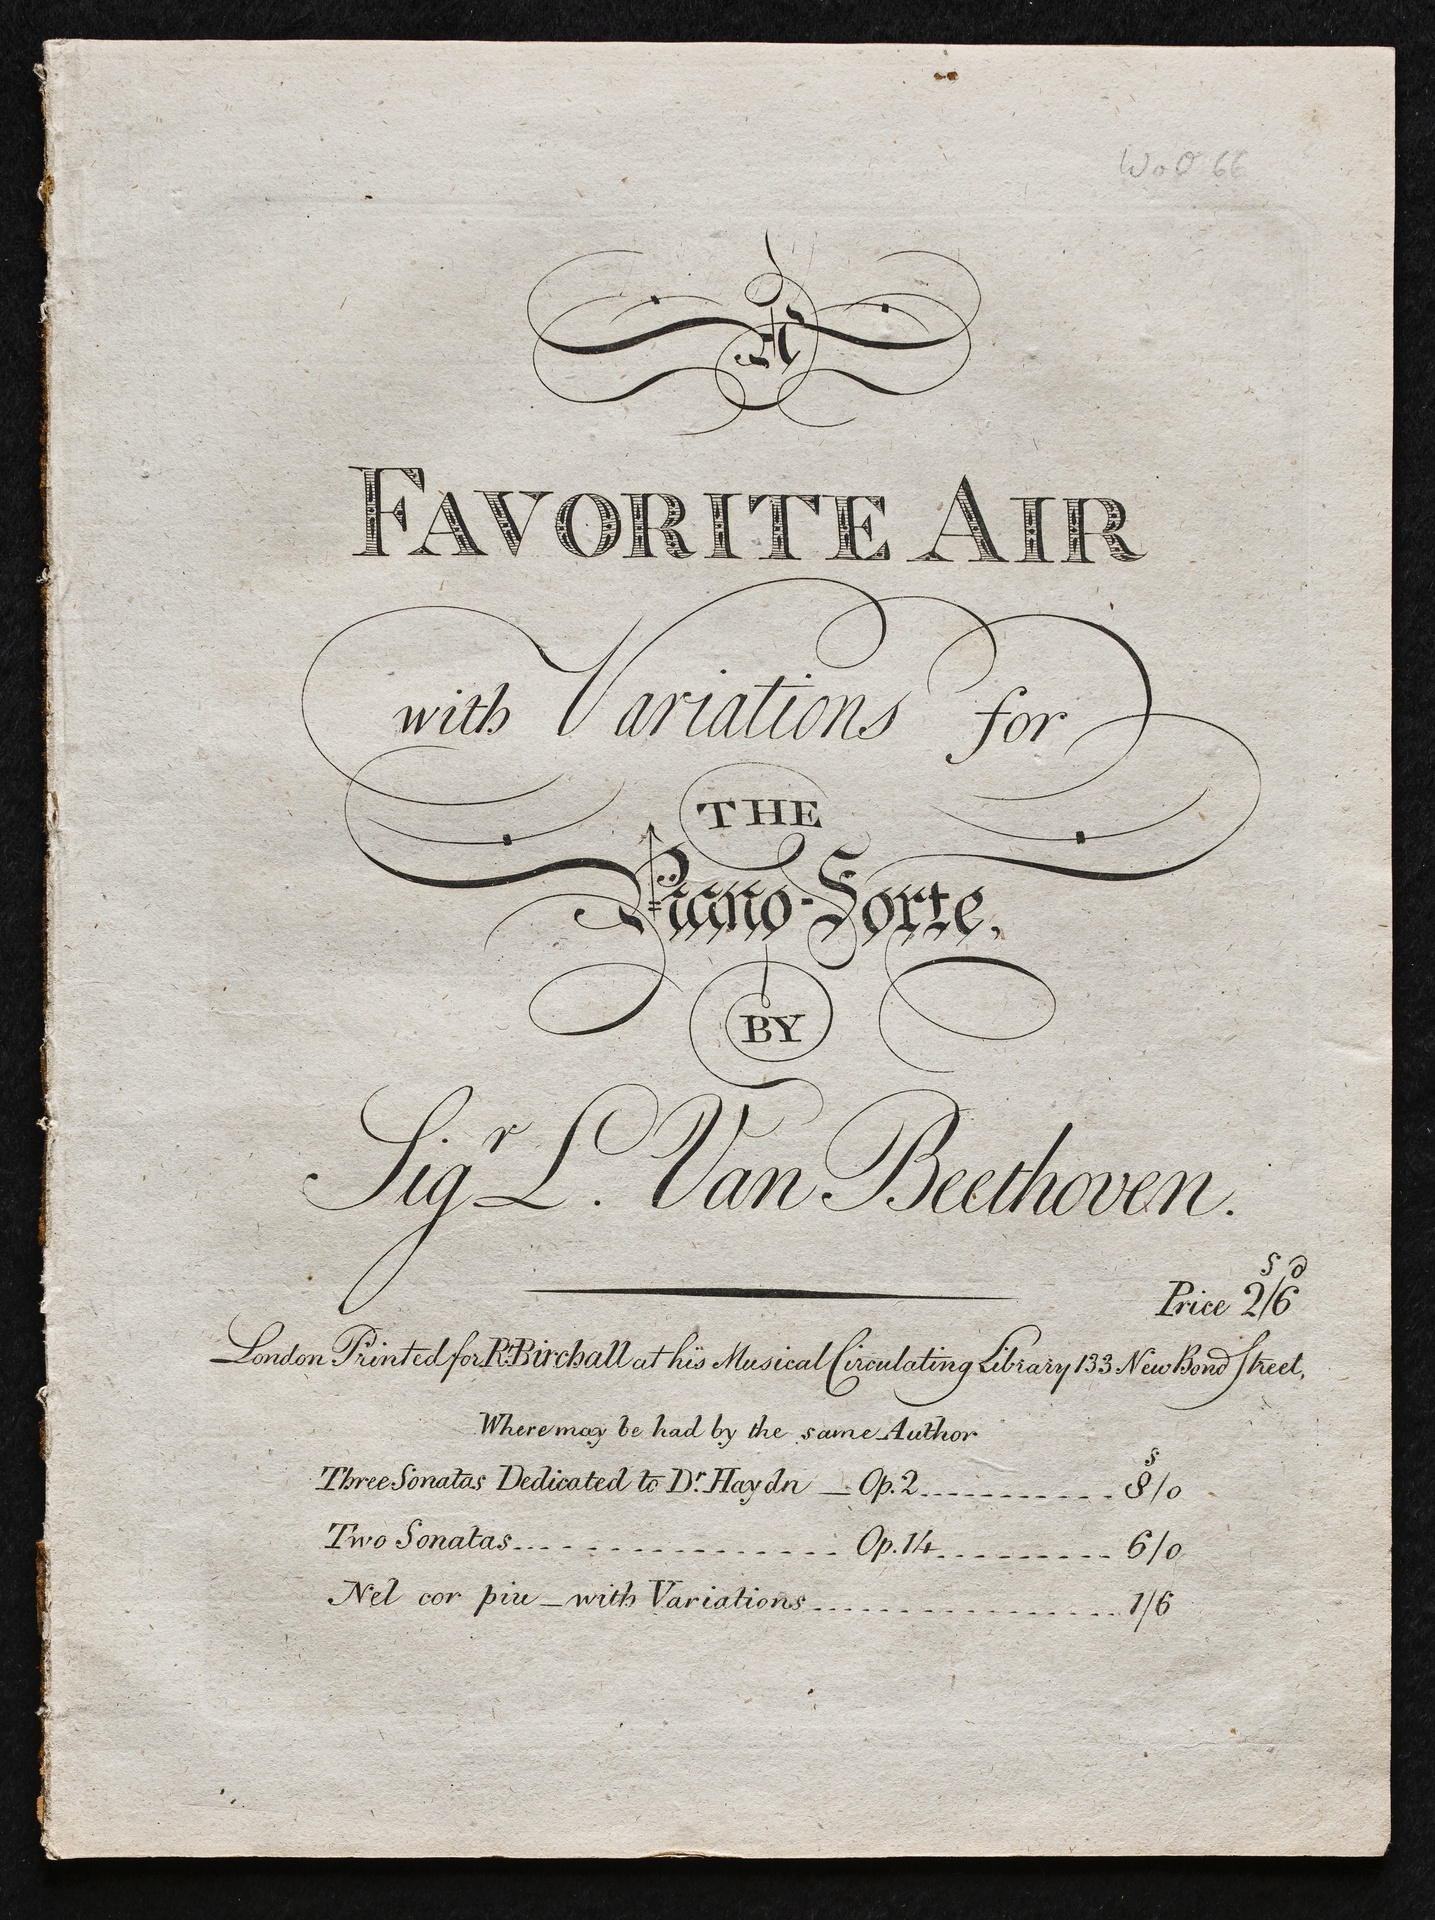 WoO 66
A
FAVORITE AIR
with Variations for
THE
Piano-Forte,
BY
Sigr L. Van Beethoven.
s d
Price 2/6
London Printed for Rt. Birchall at his Musical Circulating Library 133 New Bond Street,
Where may be had by the same Author
s
Three Sonatas Dedicated to Dr. Haydn — Op. 2 8/0
Two Sonatas Op. 14 6/0
Nel cor piu — with Variations 1/6